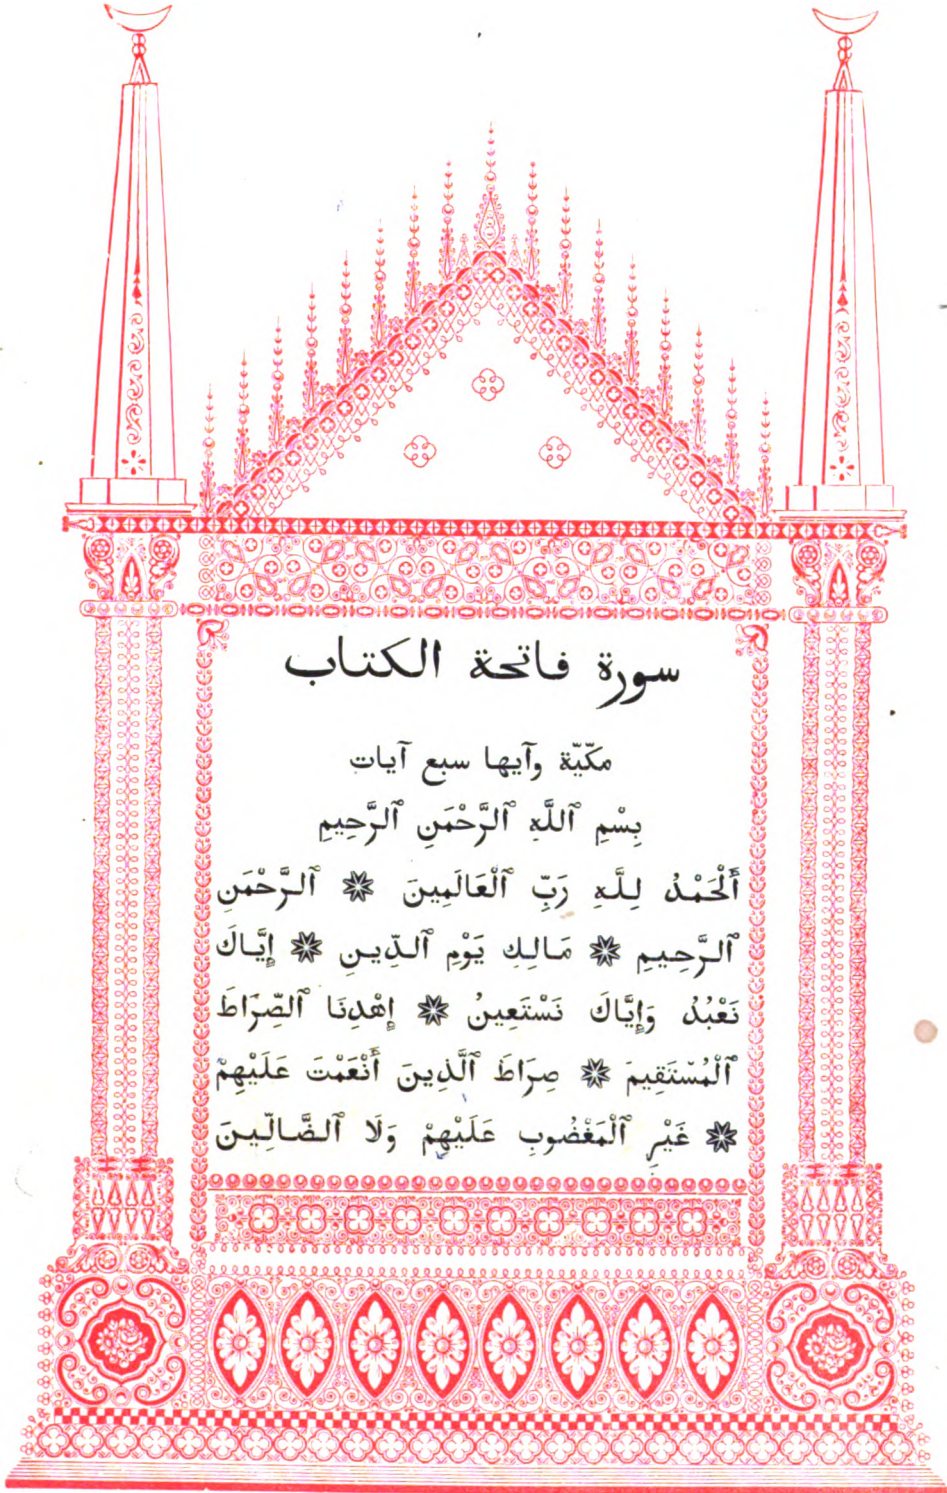 سورة فاتحة الكتاب
مكّيّة وآيها سبع آيات
بِسْمِ ٱللَّهِ ٱلرَّحْمَنِ ٱلرَّحِيمِ
أَلْحَمْدُ لِلَّهِ رَبِّ ٱلْعَالَمِينَ ✵ ٱلرَّحْمَنِ
ٱلرَّحِيمِ ✵ مَالِكِ يَوْمِ ٱلدِّينِ ✵ إِيَّاكَ
نَعْبُدُ وَإِيَّاكَ نَسْتَعِينُ ✵ إِهْدِنَا ٱلصِّرَاطَ
ٱلْمُسْتَقِيمَ ✵ صِرَاطَ ٱلَّذِينَ أَنْعَمْتَ عَلَيْهِمْ
✵ غَيْرِ ٱلْمَغْضُوبِ عَلَيْهِمْ وَلَا ٱلضَّالِّينَ